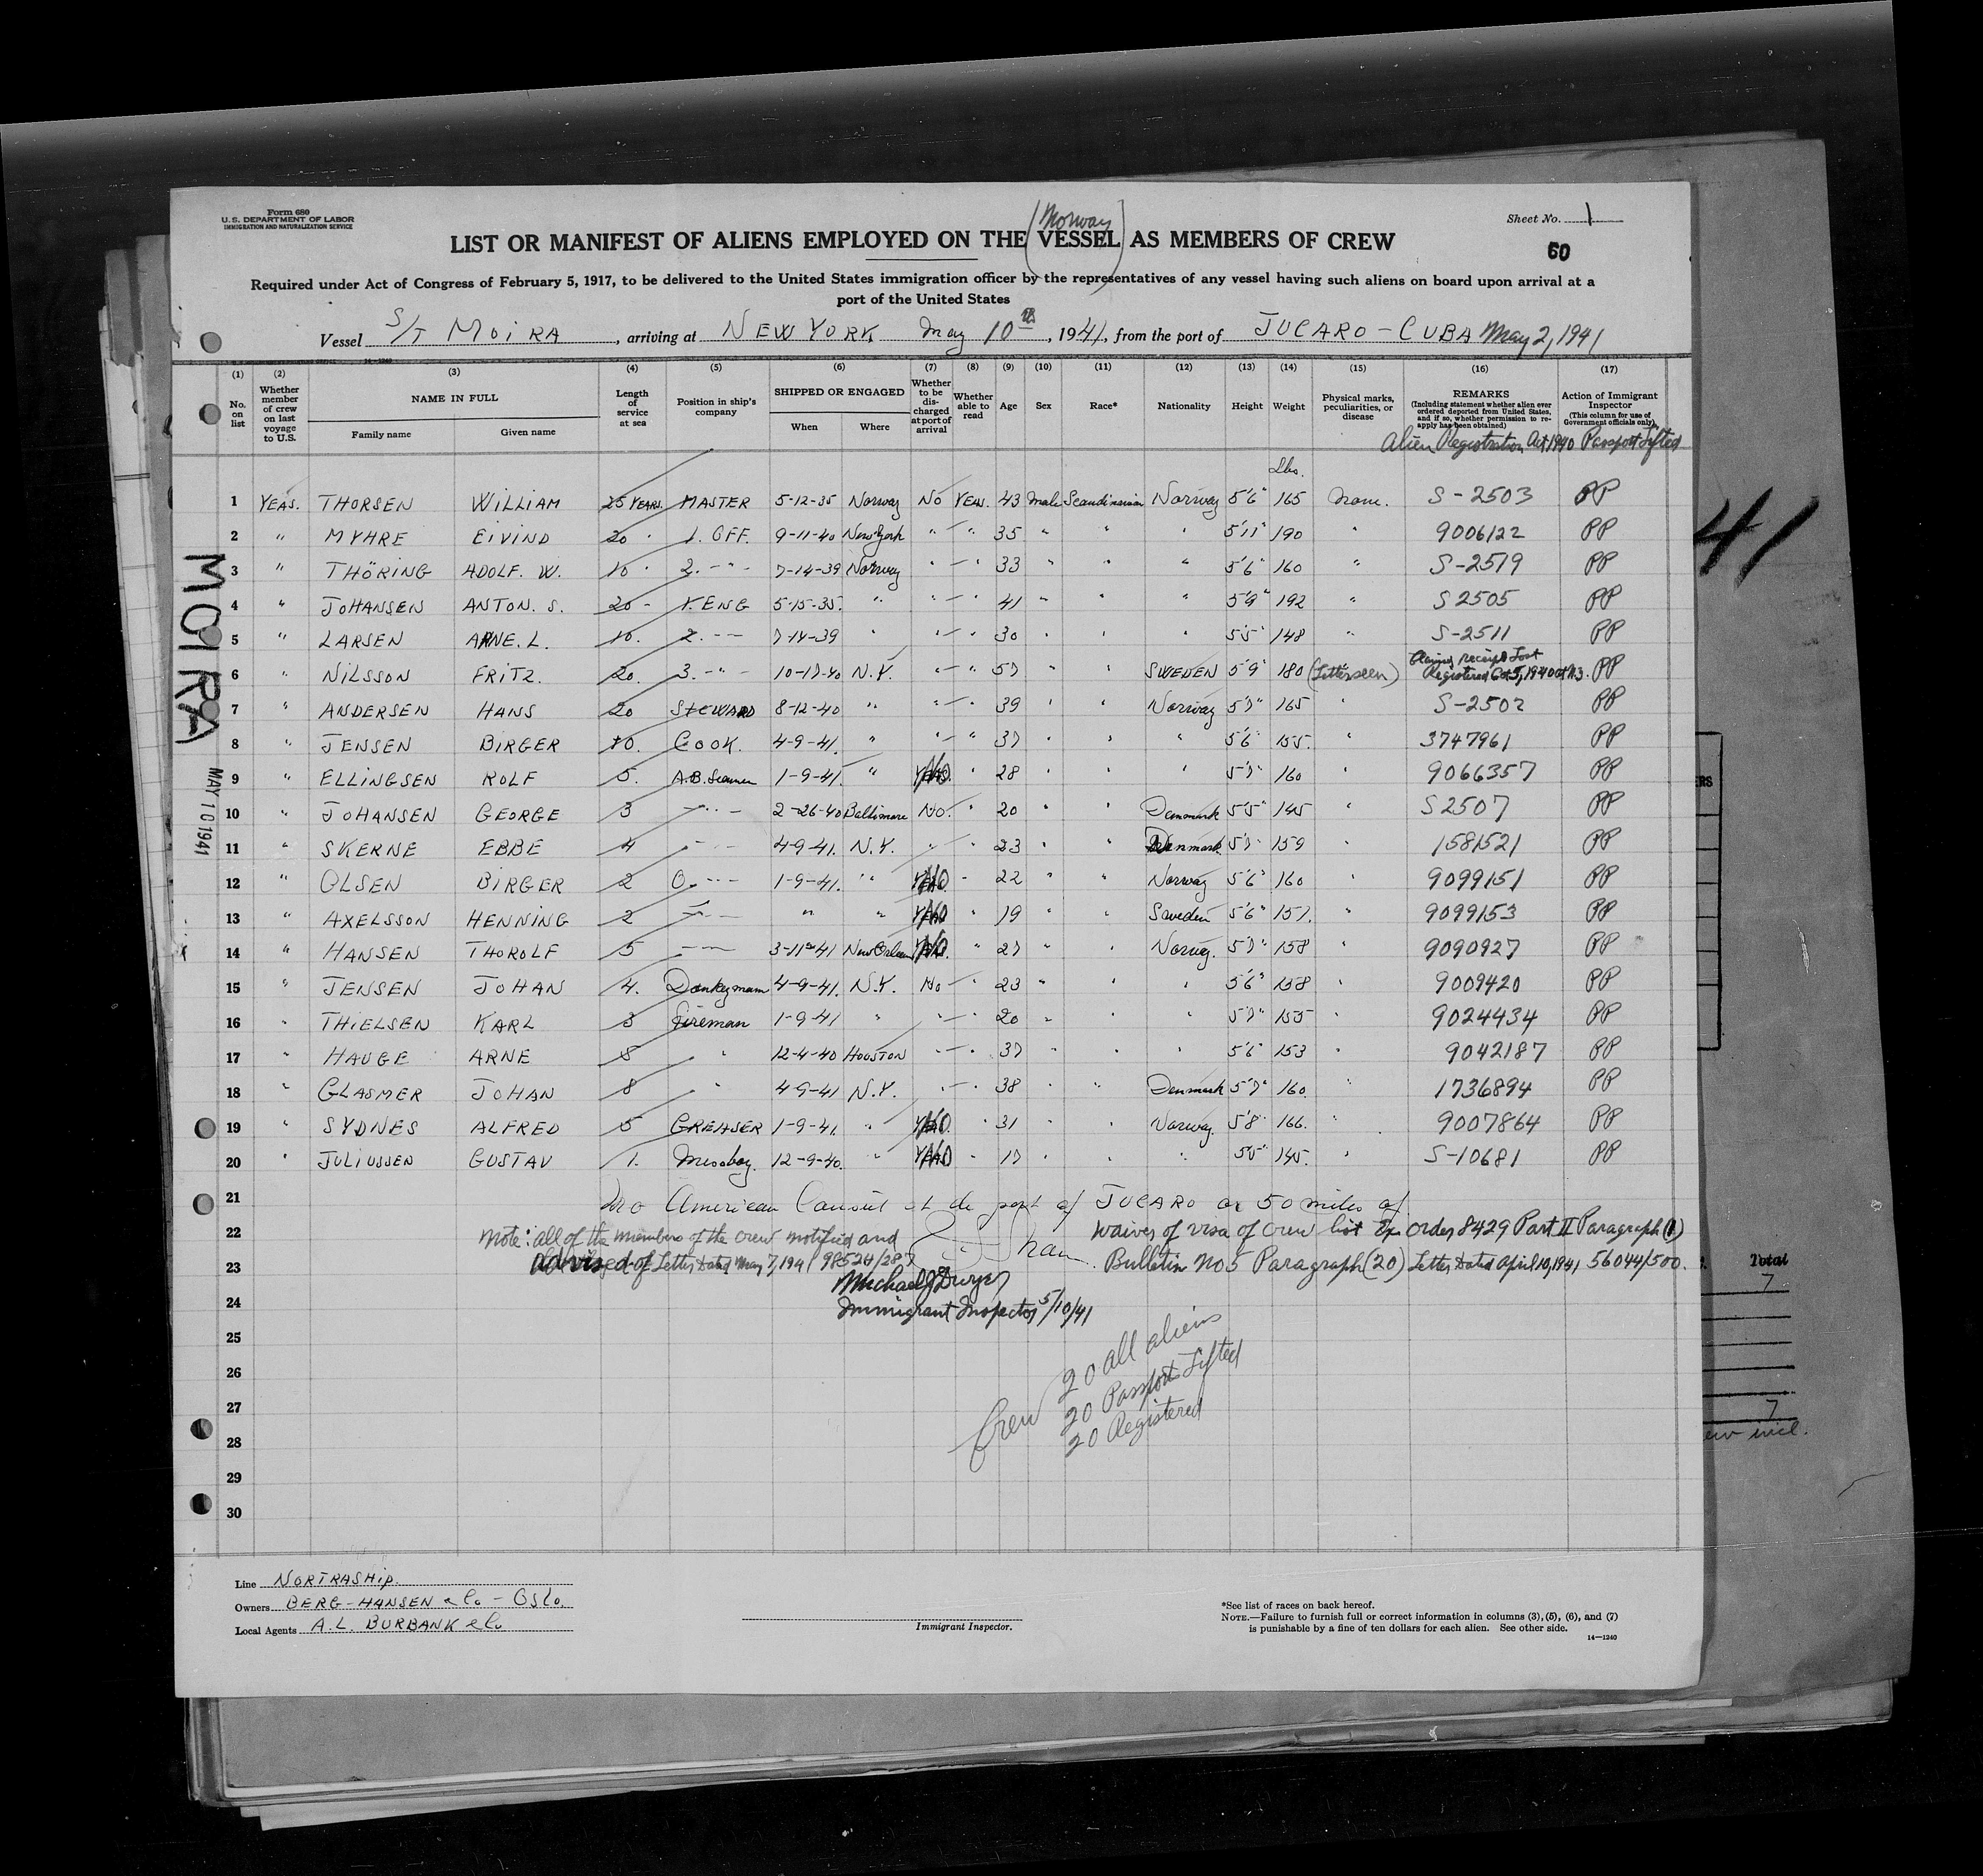 Form 680
U.S. DEPARTMENT OF LABOR
IMMIGRATION AND NATURALIZATION SERVICE
Sheet No. 1
60
(Norway)
LIST OR MANIFEST OF ALIENS EMPLOYED ON THE VESSEL AS MEMBERS OF CREW
Required under Act of Congress of February 5, 1917, to be delivered to the United States immigration officer by the representatives of any vessel having such aliens on board upon arrival at a
port of the United States
Vessel S/T MOIRA, arriving at NEW YORK May 10th, 1941, from the port of JUCARO - CUBA May 2, 1941
14-1240
(1) (2) (3) (4) (5) (6) (7) (8) (9) (10) (11) (12) (13) (14) (15) (16) (17)
No. on list
Whether member of crew on last voyage to U.S.
NAME IN FULL
Family name
Given name
Length of service at sea
Position in ship's company
SHIPPED OR ENGAGED
When
Where
Whether to be discharged at port of arrival
Whether able to read
Age
Sex
Race*
Nationality
Height
Weight
Physical marks, peculiarities, or disease
REMARKS
(Including statement whether alien ever ordered deported from United States, and if so, whether permission to reapply has been obtained)
Action of Immigrant Inspector
(This column for use of Government officials only)
Alien Registration Act 1940 Passport Lifted
Lbs.
1 YEAS. THORSEN WILLIAM 25 YEARS. MASTER 5-12-35 Norway No YEAS. 43 Male Scandinavian Norway 5'6" 165 None. S-2503 PP
2 " MYHRE EIVIND 20 " 1. OFF. 9-11-40 New York " " 35 " " " 5'11" 190 " 9006122 PP
3 " THÖRING ADOLF. W. 10 " 2. -"- 7-14-39 Norway " " 33 " " " 5'6" 160 " S-2519 PP
4 " JOHANSEN ANTON. S. 20 - 1. ENG 5-15-35. " " " 41 " " " 5'9" 192 " S 2505 PP
5 " LARSEN ARNE. L. 10. 2. -- 7-14-39 " " " 30 " " " 5'5" 148 " S-2511 PP
6 " NILSSON FRITZ. 20. 3. -"- 10-17-40 N.Y. " " 57 SWEDEN 5'9" 180 (Letter seen) Claims receipt Lost Registered Oct 5, 1940 PP
7 " ANDERSEN HANS 20 STEWARD 8-12-40 " " 39 " " Norway 5'7" 165 " S-2502 PP
8 " JENSEN BIRGER 10. COOK. 4-9-41. " " " 37 " " " 5'6" 155. " 3747961 PP
9 " ELLINGSEN ROLF 5. A.B. Seamen 1-9-41. " NO " 28 " " " 5'7" 160 " 9066357 PP
10 " JOHANSEN GEORGE 3 -"- 2-26-40 Baltimore No. " 20 " " Denmark 5'5" 145 " S 2507 PP
11 " SKERNE EBBE 4 -"- 4-9-41. N.Y. " " 23 " " Denmark 5'7" 159 " 1581521 PP
12 " OLSEN BIRGER 2 O. -"- 1-9-41. " NO " 22 " " Norway 5'6" 160 " 9099151 PP
13 " AXELSSON HENNING 2 -"- " " NO " 19 " " Sweden 5'6" 157. " 9099153 PP
14 " HANSEN THOROLF 5 -"- 3-11-41 New Orleans NO " 27 " Norway. 5'7" 158 " 9090927 PP
15 " JENSEN JOHAN 4. Donkeyman 4-9-41. N.Y. No " 23 " " " 5'6" 158 " 9009420 PP
16 " THIELSEN KARL 3 Fireman 1-9-41 " " " 20 " " 5'7" 155 " 9024434 PP
17 " HAUGE ARNE 8 " 12-4-40 HOUSTON " " 37 " " " 5'6" 153 " 9042187 PP
18 " GLASMER JOHAN 8 " 4-9-41 N.Y. " " 38 " " Denmark 5'7" 160. " 1736894 PP
19 " SYDNES ALFRED 5 GREASER 1-9-41. " NO " 31 " " Norway. 5'8" 166. " 9007864 PP
20 " JULIUSSEN GUSTAV 1. Messboy. 12-9-40. " NO " 17 " " " 5'5" 145. " S-10681 PP
21 No American Consul at the port of JUCARO or 50 miles of
22 Note: all of the members of the crew notified and Waiver of visa of crew list Ex Order 8429 Part II Paragraph (1)
23 advised of Letter Dated May 7, 1941 98524/287 Bulletin No 5 Paragraph (20) Letter Dated April 10, 1941 56044/500.
Michael J Dwyer
24 Immigrant Inspector 5/10/41
25
26
27
28
29
30
Crew 20 all aliens
20 Passports Lifted
20 Registered
MOIRA
MAY 10 1941
41
ERS
Total
7
7
Line NORTRASHIP.
Owners BERG-HANSEN & Co - Oslo.
Local Agents A.L. BURBANK & Co
Immigrant Inspector.
*See list of races on back hereof.
NOTE.—Failure to furnish full or correct information in columns (3), (5), (6), and (7)
is punishable by a fine of ten dollars for each alien. See other side.
14-1240